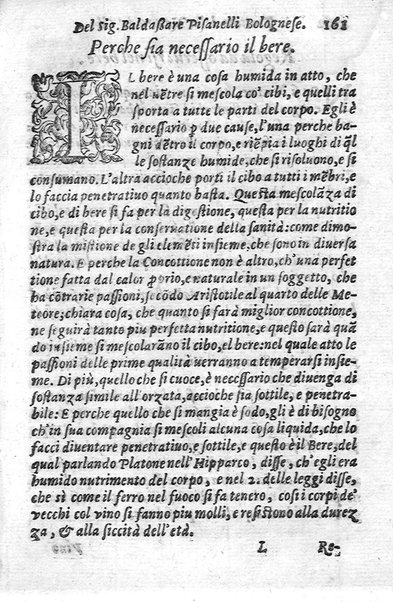 Del sig. Baldaſſare Piſanelli Bologneſe. 161
Perche ſia neceſſario il bere.
IL bere è una coſa humida in atto, che
nel vẽtre ſi meſcola co' cibi, e quelli tra
ſporta a tutte le parti del corpo. Egli è
neceſſario p due cauſe, l'una perche ba-
gni dẽtro il corpo, e riẽpia i luoghi di q̃l
le ſoſtanze humide, che ſi riſoluono, e ſi
conſumano. L'altra accioche porti il cibo a tutti i mẽbri, e
lo faccia penetratiuo quanto baſta. Queſta meſcolãza di
cibo, e di bere ſi fa per la digeſtione, queſta per la nutritio
ne, e queſta per la conſeruatione della ſanità: come dimo-
ſtra la miſtione de gli elemẽti inſieme, che ſono in diuerſa
natura. E perche la Concottione non è altro, ch'una perfet
tione fatta dal calor ꝓprio, e naturale in un ſoggetto, che
ha cõtrarie paſſioni, ſecõdo Ariſtotile al quarto delle Me-
teore; chiara coſa, che quanto ſi farà miglior concottione,
ne ſeguirà tanto piu perfetta nutritione, e queſto ſarà quã
do inſieme ſi meſcolarãno il cibo, el bere: nel quale atto le
paſſioni delle prime qualità verranno a temperarſi inſie-
me. Di più, quello che ſi cuoce, è neceſſario che diuenga di
ſoſtanza ſimile all'orzata, accioche ſia ſottile, e penetra-
bile: E perche quello che ſi mangia è ſodo, gli è di biſogno
ch'in ſua compagnia ſi meſcoli alcuna coſa liquida, che lo
facci diuentare penetratiuo, e ſottile, e queſto è il Bere, del
qual parlando Platone nell'Hipparco, diſſe, ch'egli era
humido nutrimento del corpo, e nel 2. delle leggi diſſe,
che ſi come il ferro nel fuoco ſi fa tenero, coſi i corpi de'
vecchi col vino ſi fanno piu molli, e reſiſtono alla durez
za, & alla ſiccità dell'età.
L Re-